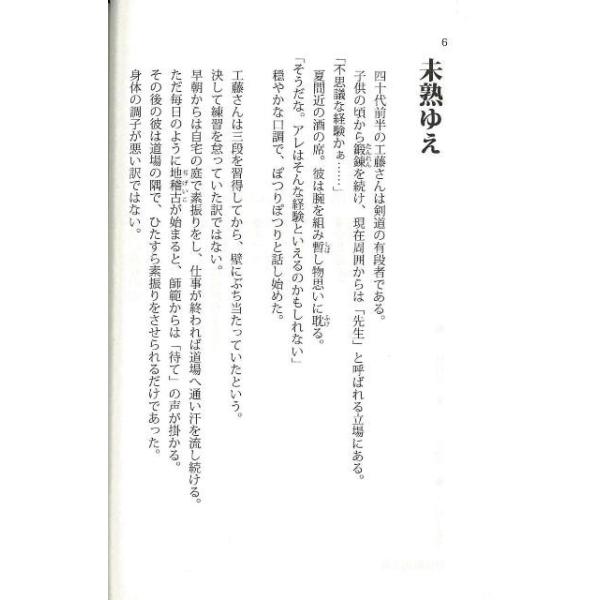 6
未熟ゆえ
四十代前半の工藤さんは剣道の有段者である。
子供の頃から鍛錬を続け、現在周囲からは「先生」と呼ばれる立場にある。
「不思議な経験かぁ……」
夏間近の酒の席。彼は腕を組み暫し物思いに耽る。
「そうだな。アレはそんな経験といえるのかもしれない」
穏やかな口調で、ぽつりぽつりと話し始めた。
工藤さんは三段を習得してから、壁にぶち当たっていたという。
決して練習を怠っていた訳ではない。
早朝からは自宅の庭で素振りをし、仕事が終われば道場へ通い汗を流し続ける。
ただ毎日のように地稽古が始まると、師範からは「待て」の声が掛かる。
その後の彼は道場の隅で、ひたすら素振りをさせられるだけであった。
身体の調子が悪い訳ではない。